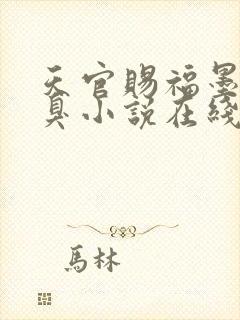 天官賜福墨
臭小說在綫
馬林